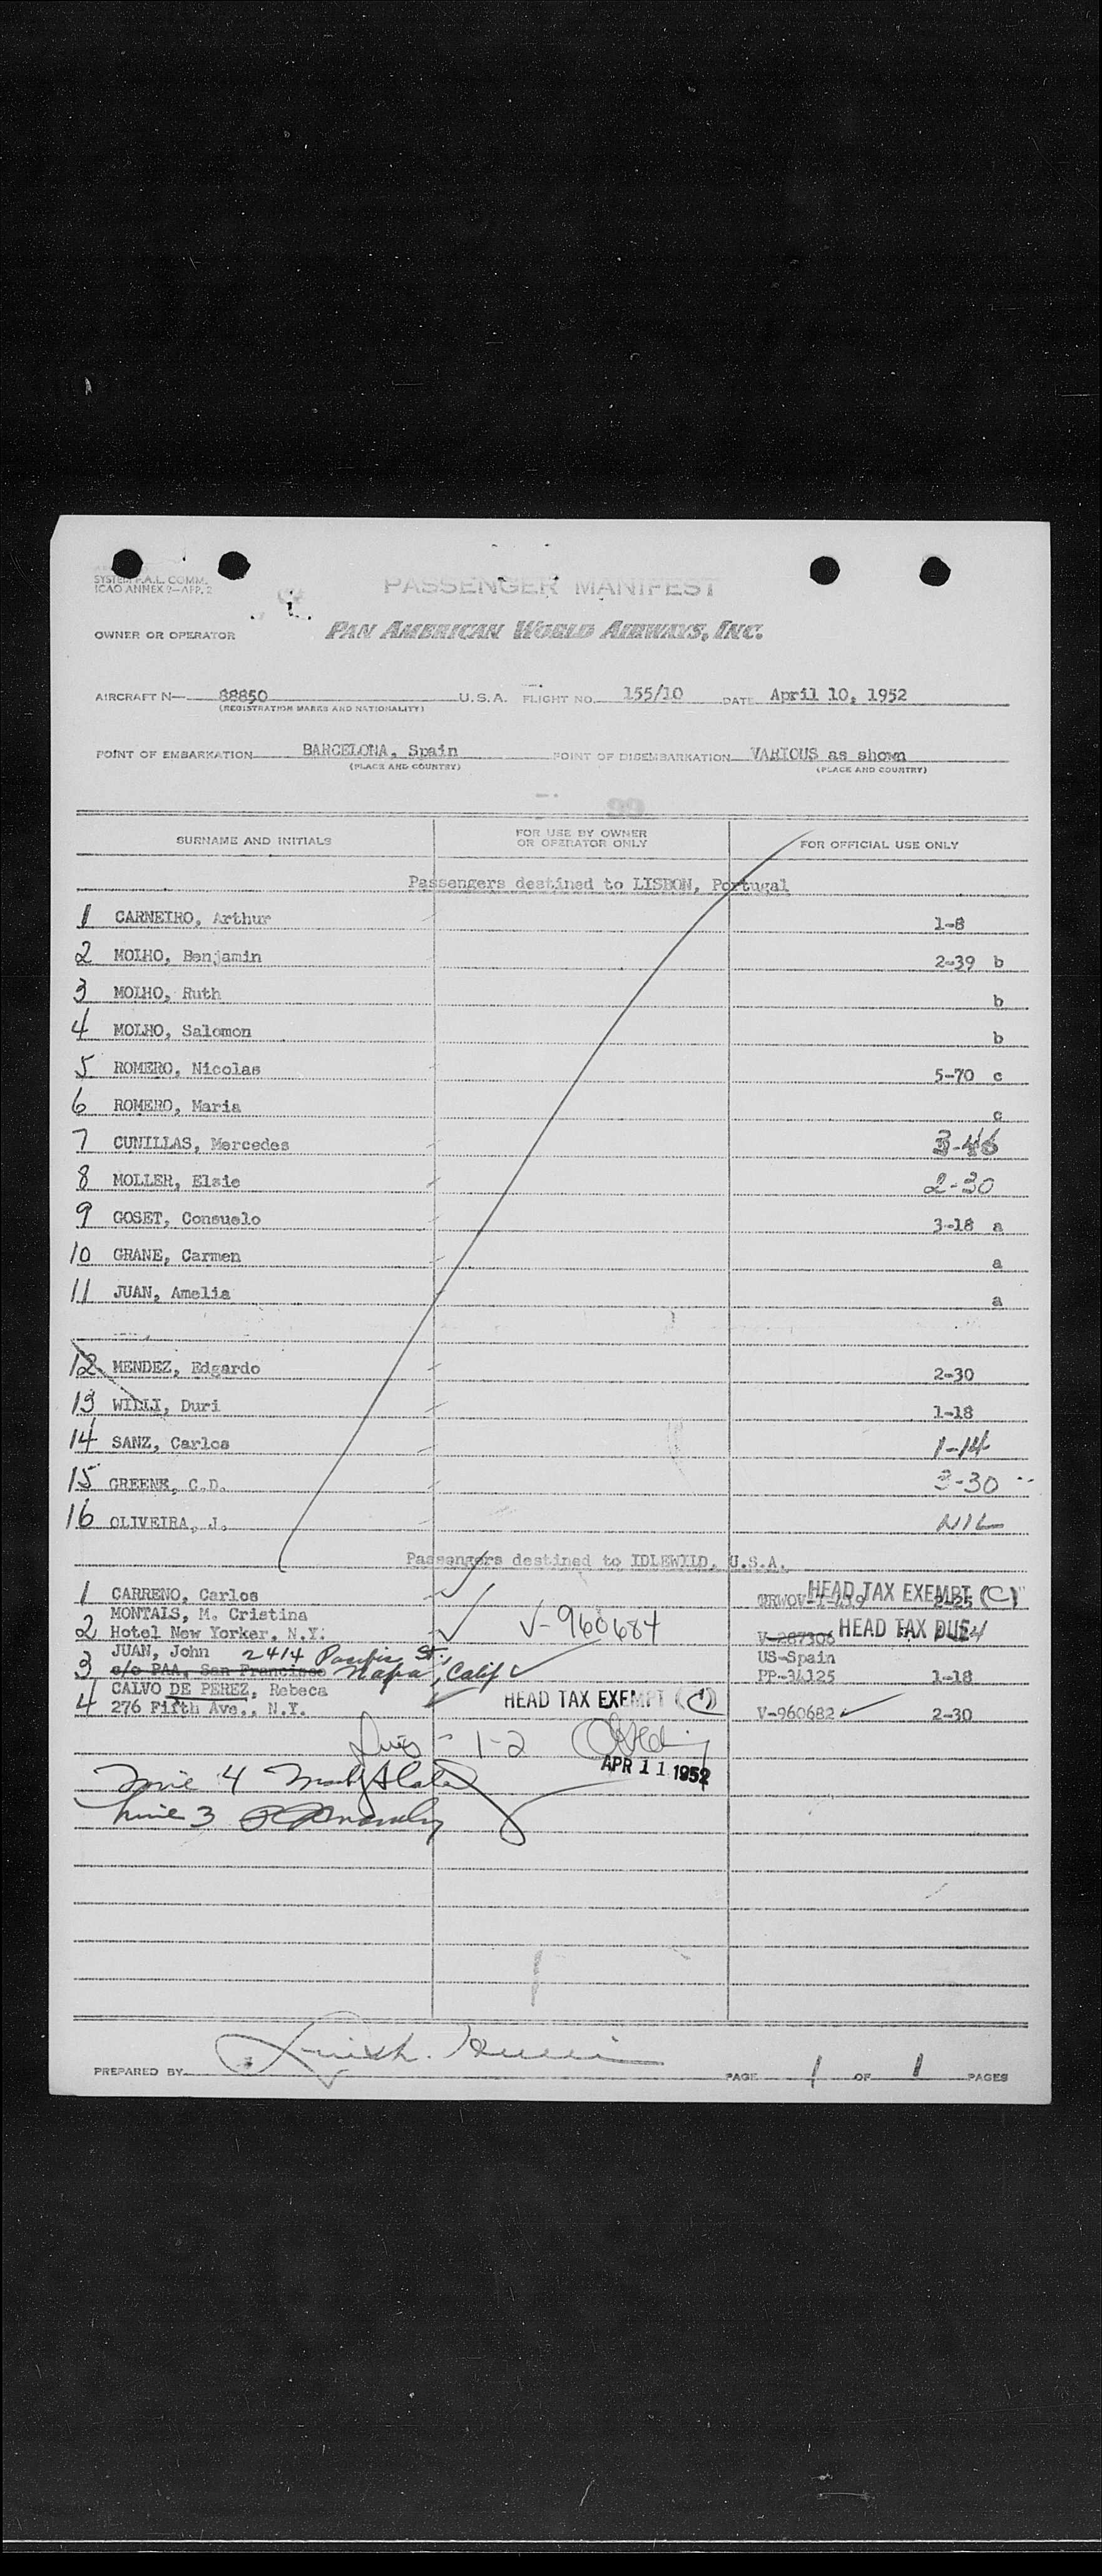 SYSTEM F.A.L. COMM.
ICAO ANNEX 9—APP. 2
PASSENGER MANIFEST
OWNER OR OPERATOR PAN AMERICAN WORLD AIRWAYS, INC.
AIRCRAFT N— 88850 U.S.A. FLIGHT NO. 155/10 DATE April 10, 1952
(REGISTRATION MARKS AND NATIONALITY)
POINT OF EMBARKATION BARCELONA, Spain POINT OF DISEMBARKATION VARIOUS as shown
(PLACE AND COUNTRY) (PLACE AND COUNTRY)
SURNAME AND INITIALS FOR USE BY OWNER OR OPERATOR ONLY FOR OFFICIAL USE ONLY
Passengers destined to LISBON, Portugal
1 CARNEIRO, Arthur 1-8
2 MOLHO, Benjamin 2-39 b
3 MOLHO, Ruth b
4 MOLHO, Salomon b
5 ROMERO, Nicolas 5-70 c
6 ROMERO, Maria c
7 CUNILLAS, Mercedes 3-46
8 MOLLER, Elsie 2-30
9 GOSET, Consuelo 3-18 a
10 GRANE, Carmen a
11 JUAN, Amelia a
12 MENDEZ, Edgardo 2-30
13 WILLI, Duri 1-18
14 SANZ, Carlos 1-14
15 GREENE, C.D. 3-30
16 OLIVEIRA, J. NIL
Passengers destined to IDLEWILD, U.S.A.
1 CARRENO, Carlos HEAD TAX EXEMPT (C) 2-25
MONTAIS, M. Cristina
2 Hotel New Yorker, N.Y. V-960684 V-287306 HEAD TAX DUE
JUAN, John 2414 Pacific St. US-Spain
3 c/o PAA, San Francisco Napa, Calif PP-34125 1-18
CALVO DE PEREZ, Rebeca HEAD TAX EXEMPT (C)
4 276 Fifth Ave., N.Y. V-960682 2-30
1-2
APR 11 1952
4
3
PREPARED BY PAGE 1 OF 1 PAGES